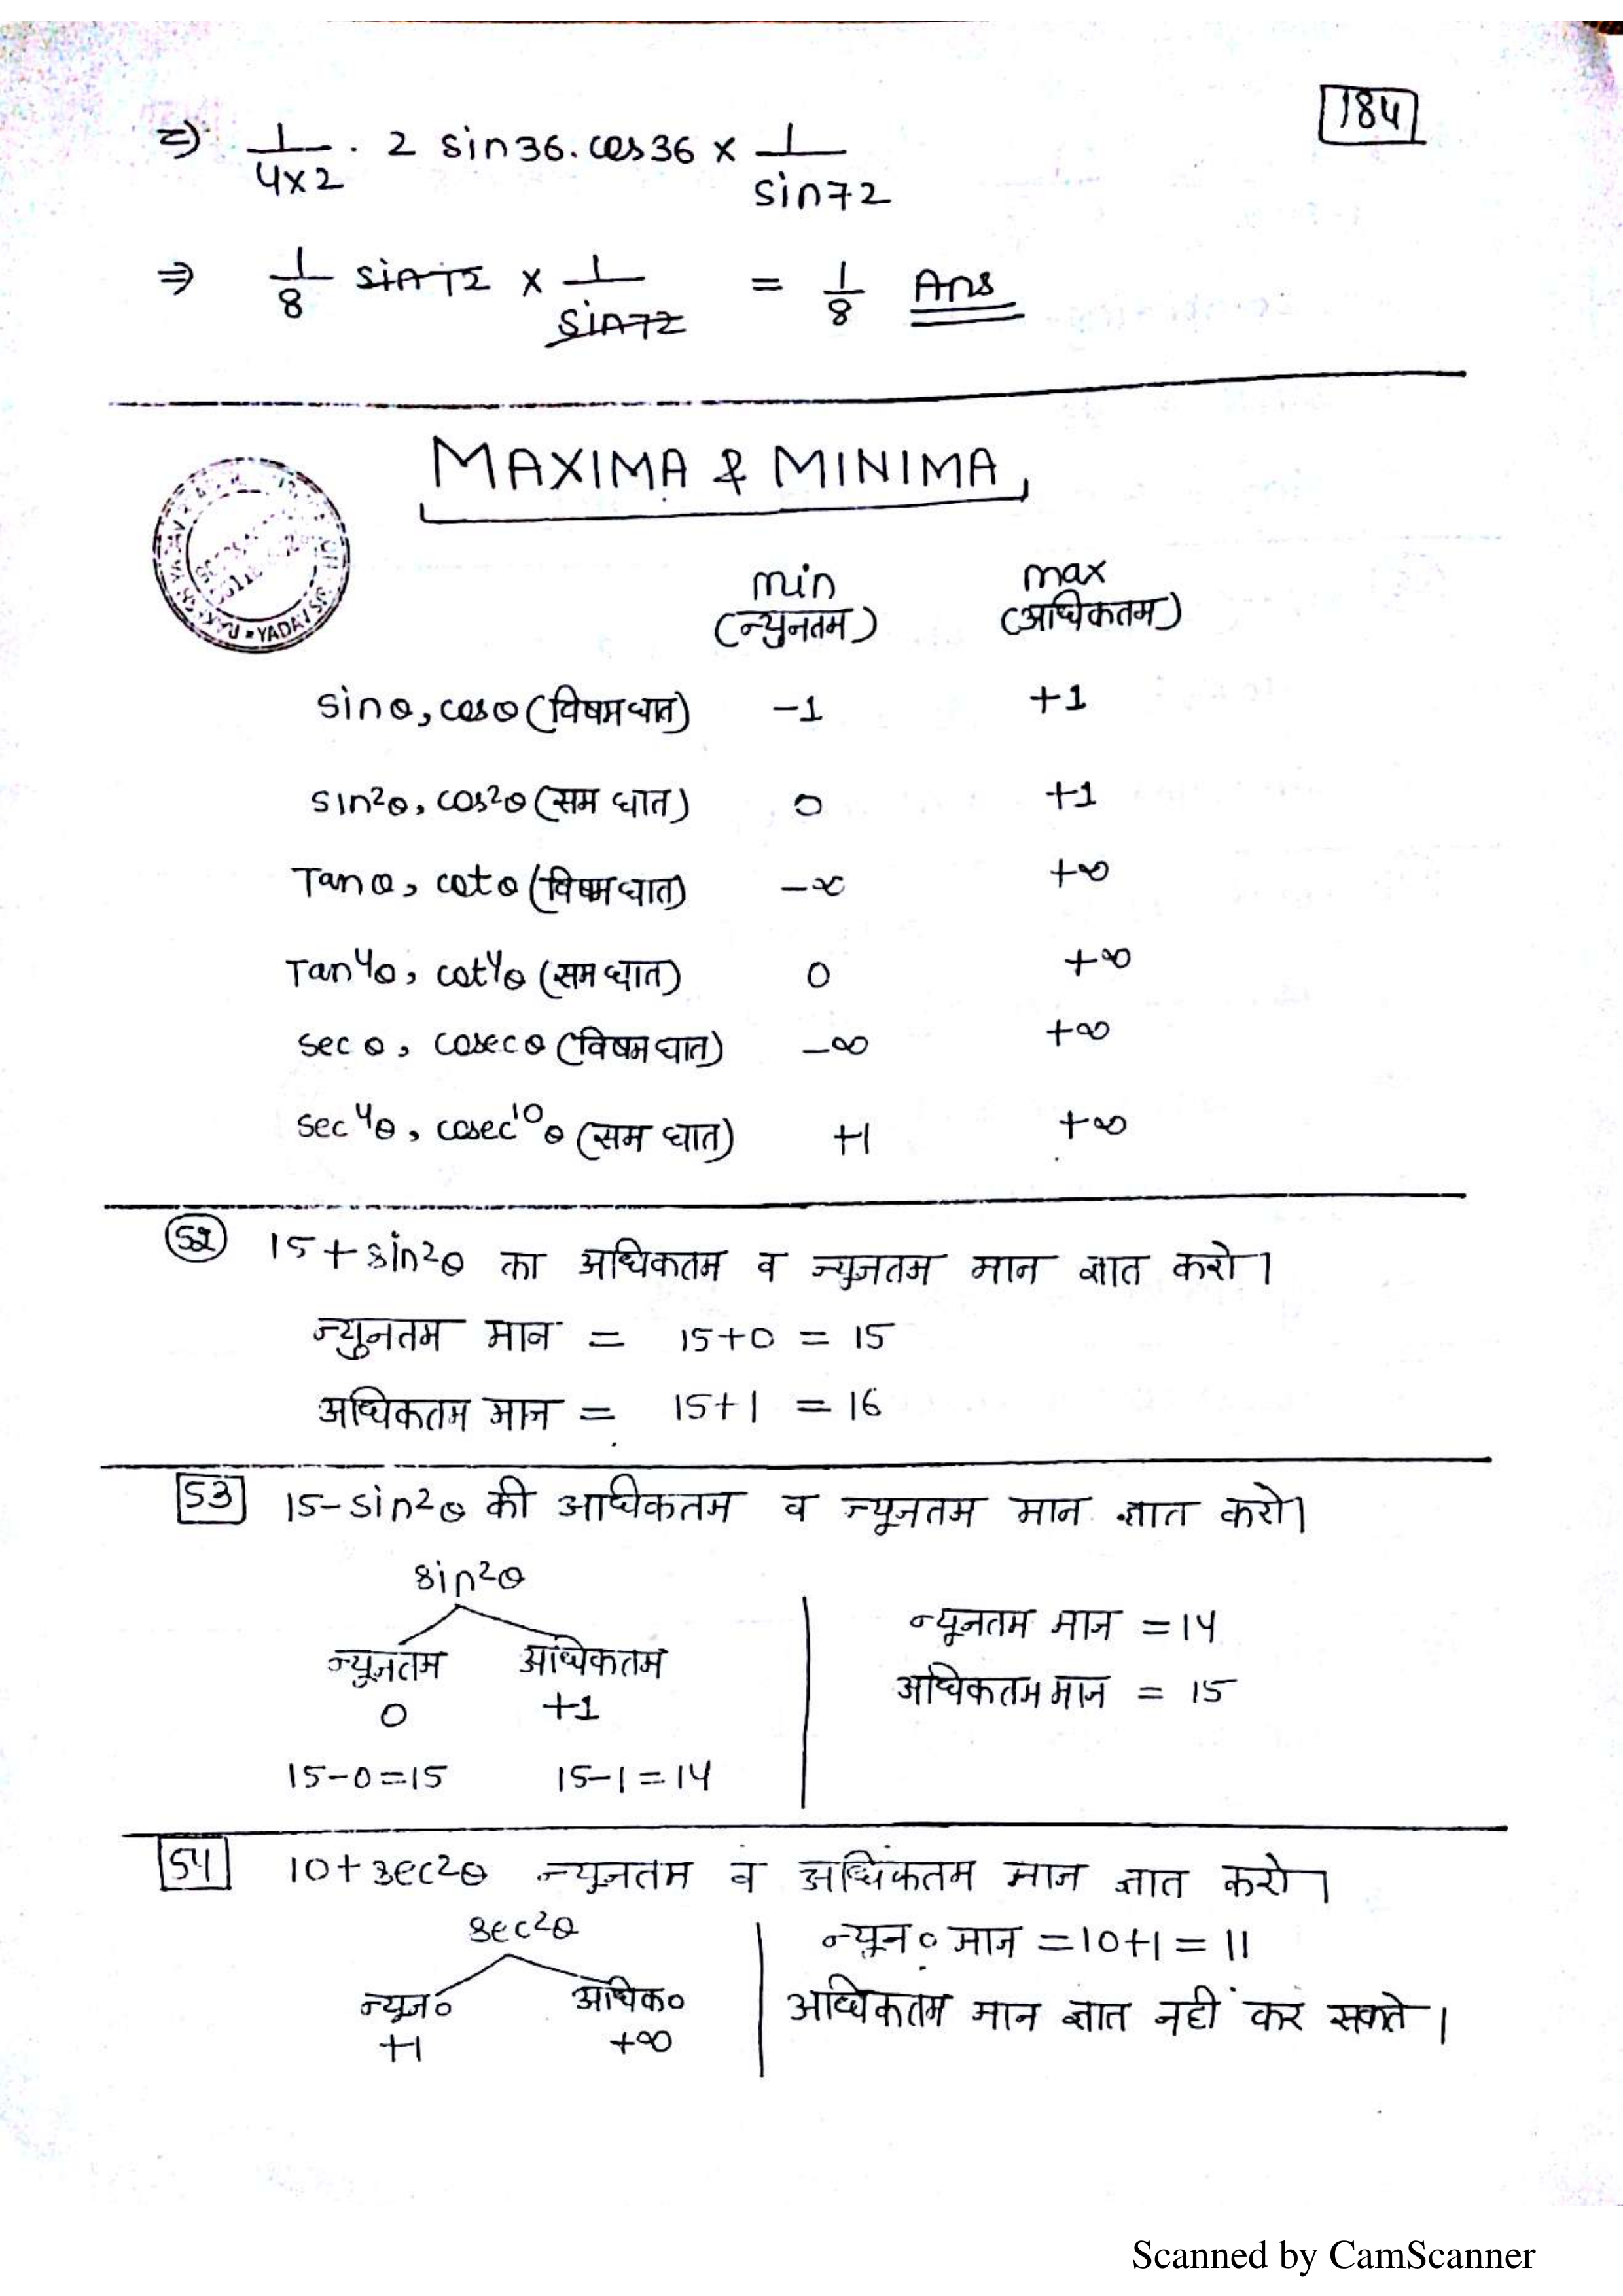 184
=> 1/(4×2) . 2 sin36.cos36 × 1/sin72
⇒ 1/8 sin72 × 1/sin72 = 1/8 Ans
MAXIMA & MINIMA
min max
(न्युनतम) (अधिकतम)
sinθ, cosθ (विषम घात) -1 +1
sin²θ, cos²θ (सम घात) 0 +1
Tanθ, cotθ (विषम घात) -∞ +∞
Tan⁴θ, cot⁴θ (सम घात) 0 +∞
secθ, cosecθ (विषम घात) -∞ +∞
sec⁴θ, cosec¹⁰θ (सम घात) +1 +∞
52 15+sin²θ का अधिकतम व न्युनतम मान ज्ञात करो।
न्युनतम मान = 15+0 = 15
अधिकतम मान = 15+1 = 16
53 15-sin²θ की अधिकतम व न्यूनतम मान ज्ञात करो।
sin²θ
न्यूनतम अधिकतम
0 +1
15-0=15 15-1=14
न्यूनतम मान = 14
अधिकतम मान = 15
54 10+sec²θ न्यूनतम व अधिकतम मान ज्ञात करो।
sec²θ
न्यून० अधिक०
+1 +∞
न्यून० मान = 10+1 = 11
अधिकतम मान ज्ञात नहीं कर सकते।
YADAV
Scanned by CamScanner